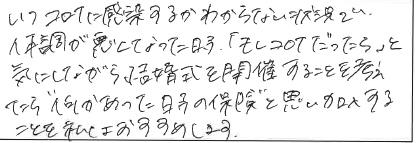 いつコロナに感染するかわからない状況で、
体調が悪くなった時、「もしコロナだったら」と
気にしながら、結婚式を開催することを考え
たら“何かあった時の保険”と思い加入する
ことを私はおすすめします。